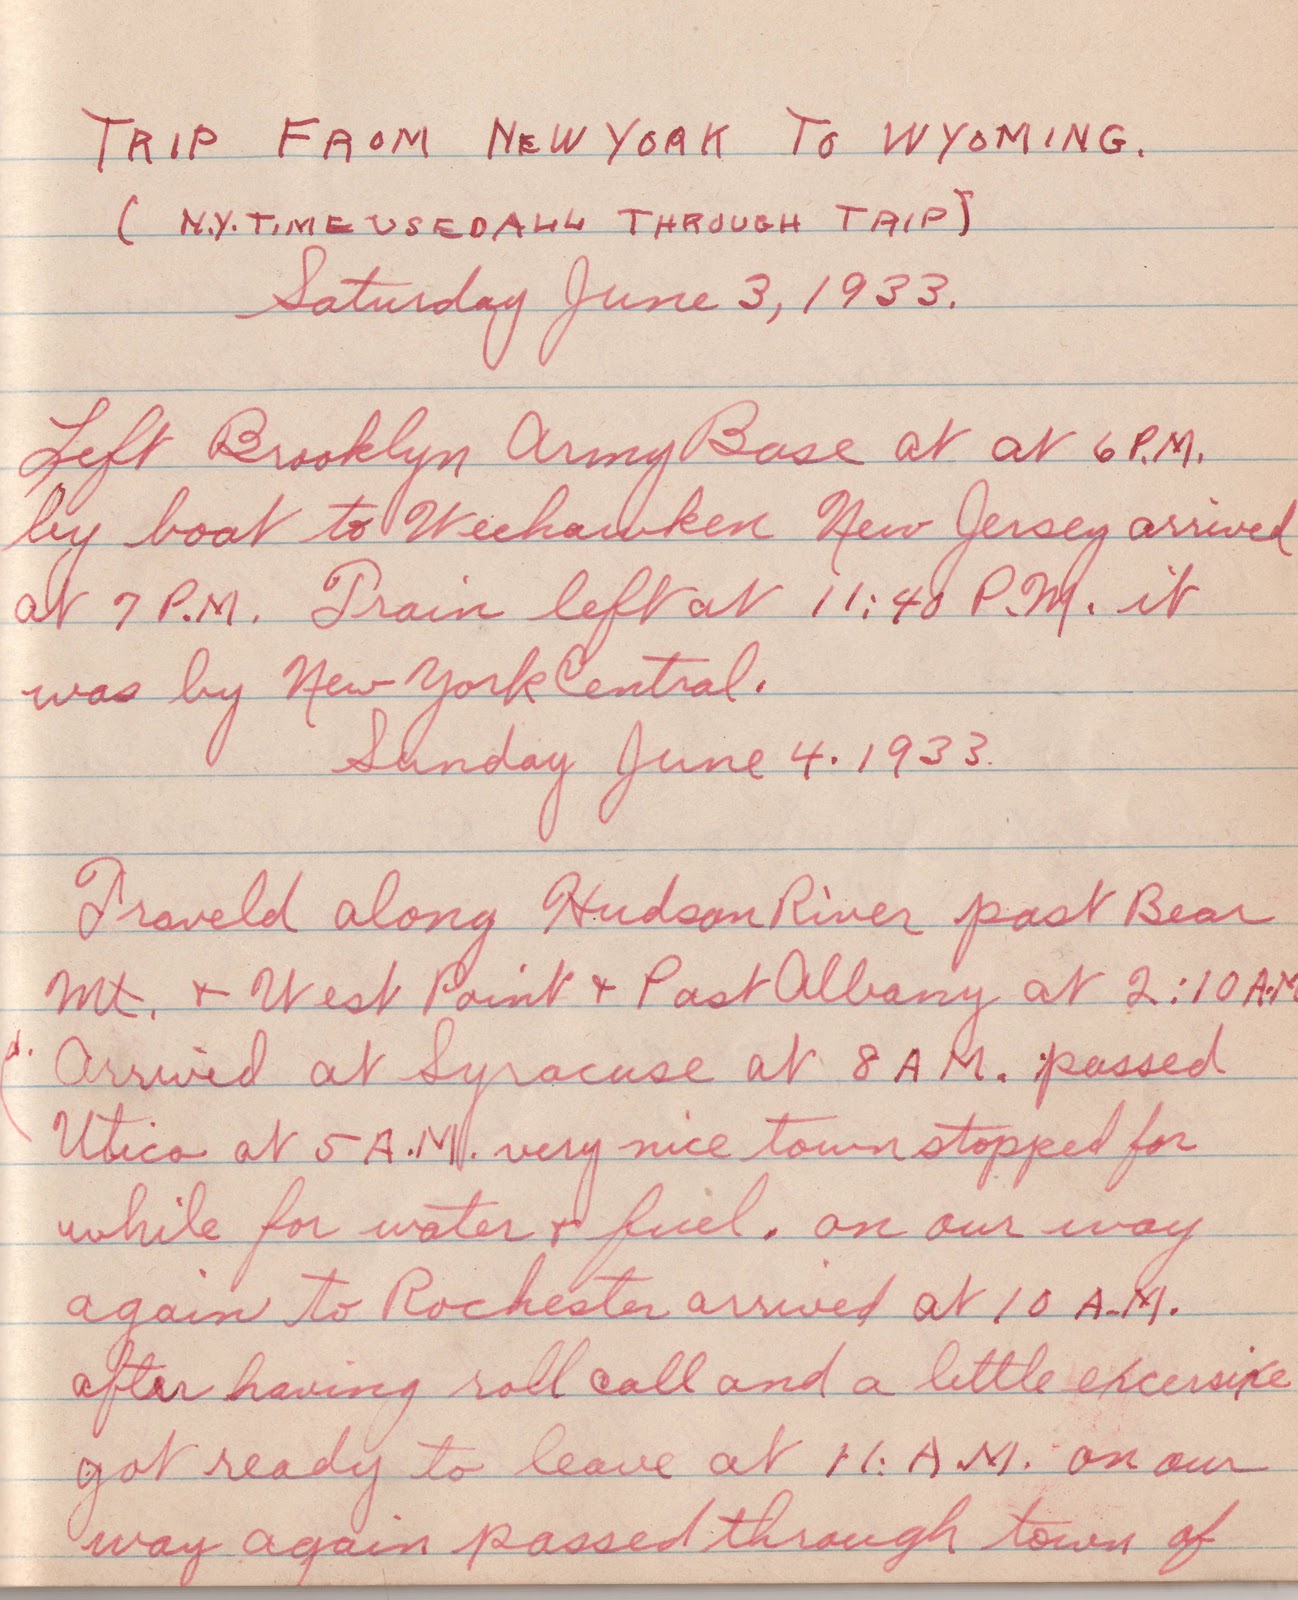 TRIP FROM NEW YORK TO WYOMING.
( N.Y. TIME USED ALL THROUGH TRIP)
Saturday June 3, 1933.
Left Brooklyn Army Base at at 6 P.M.
by boat to Weehawken New Jersey arrived
at 7 P.M. Train left at 11:40 P.M. it
was by New York Central.
Sunday June 4. 1933.
Traveld along Hudson River past Bear
Mt. + West Point + Past Albany at 2:10 A.M
Arrived at Syracuse at 8 A M. passed
Utica at 5 A.M. very nice town stopped for
while for water + fuel. on our way
again to Rochester arrived at 10 A.M.
after having roll call and a little excersixe
got ready to leave at 11: A.M. on our
way again passed through town of